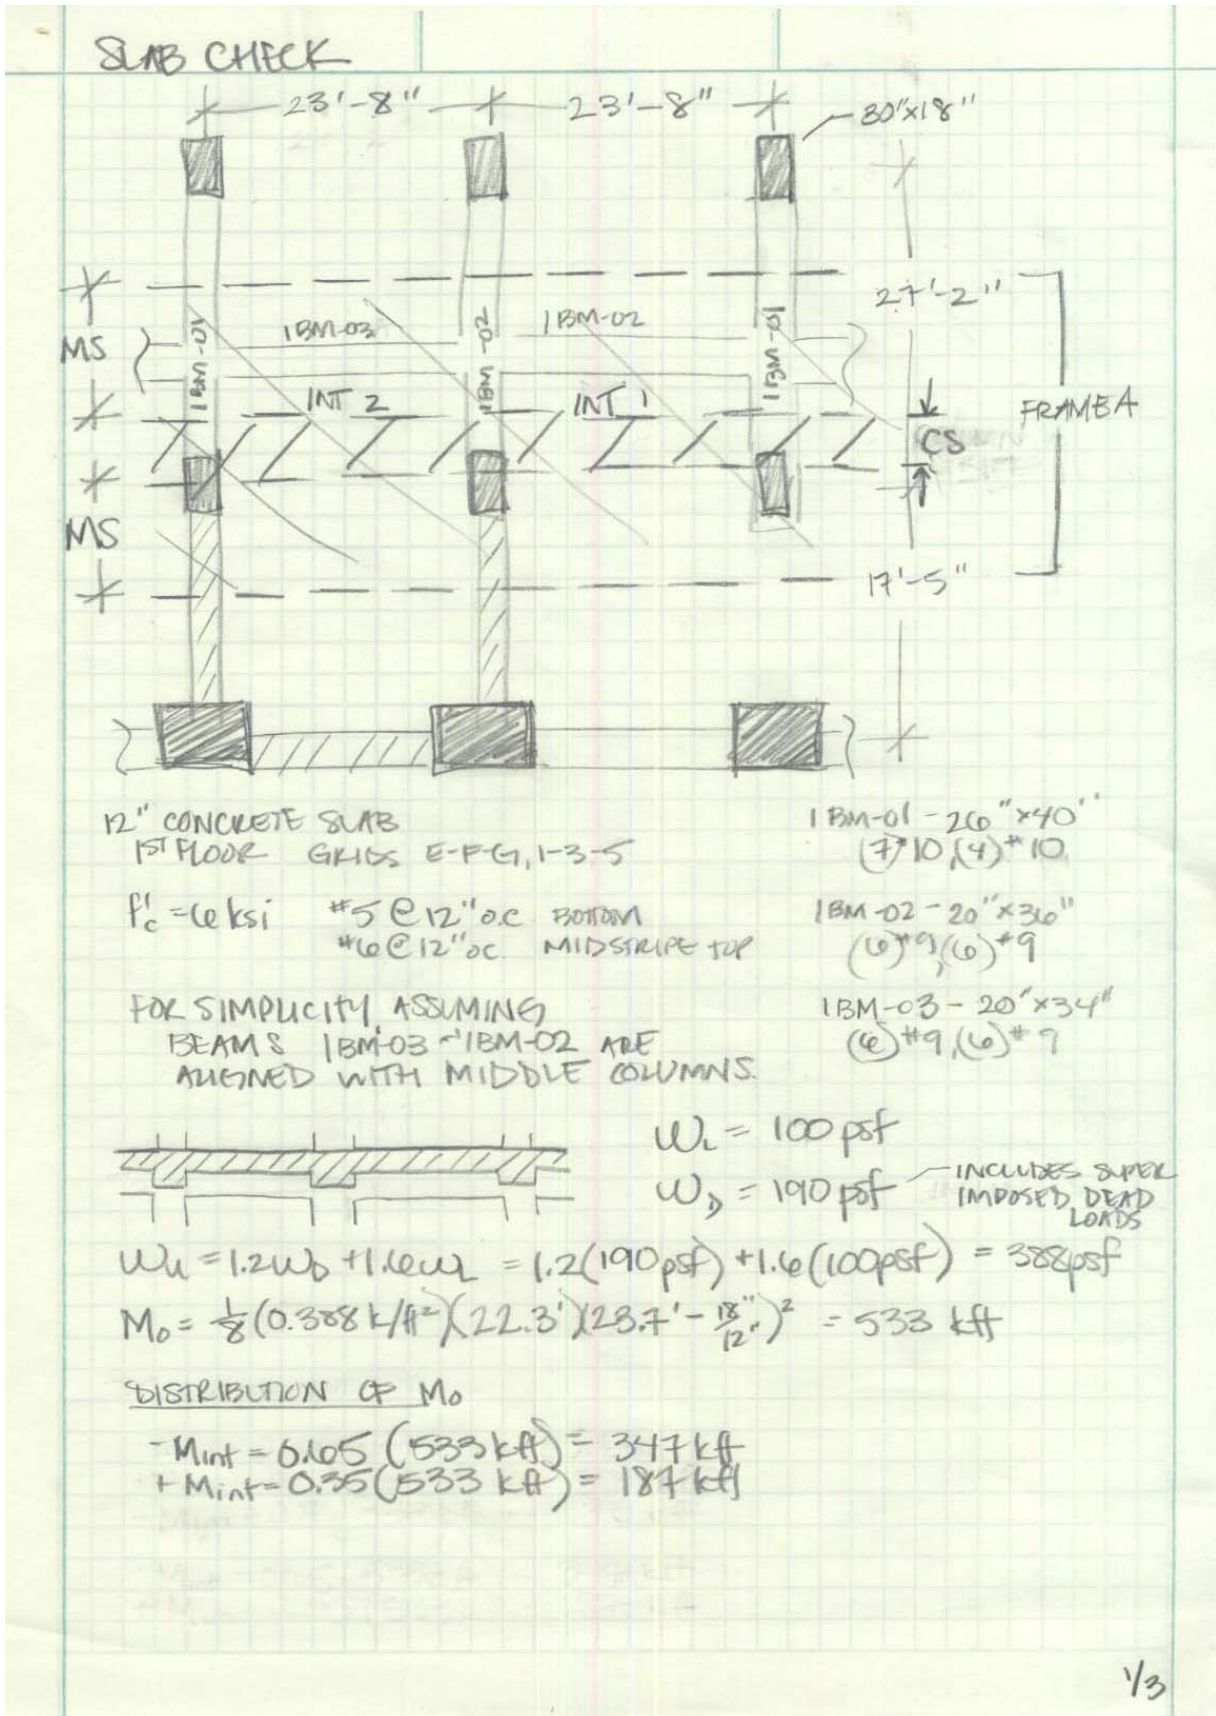 SLAB CHECK
23'-8" 23'-8" 30"x18"
27'-2"
1BM-03 1BM-02
1BM-01 1BM-02 1BM-01
MS
INT 2 INT 1
FRAME A
CS
MS
17'-5"
12" CONCRETE SLAB
1ST FLOOR GRIDS E-F-G, 1-3-5
1BM-01 - 26"x40"
(7)#10,(4)#10
f'c = 6 ksi #5 @ 12" o.c BOTTOM
#6 @ 12" oc. MIDSTRIPE TOP
1BM-02 - 20"x36"
(6)#9,(6)#9
FOR SIMPLICITY, ASSUMING
BEAMS 1BM-03 - 1BM-02 ARE
ALIGNED WITH MIDDLE COLUMNS.
1BM-03 - 20"x34"
(6)#9,(6)#9
WL = 100 psf
WD = 190 psf
INCLUDES SUPER
IMPOSED DEAD
LOADS
Wu = 1.2WD + 1.6WL = 1.2(190psf) + 1.6(100psf) = 388psf
Mo = 1/8(0.388 k/ft²)(22.3')(23.7' - 18"/12")² = 533 kft
DISTRIBUTION OF Mo
-Mint = 0.65 (533 kft) = 347 kft
+Mint = 0.35(533 kft) = 187 kft
1/3